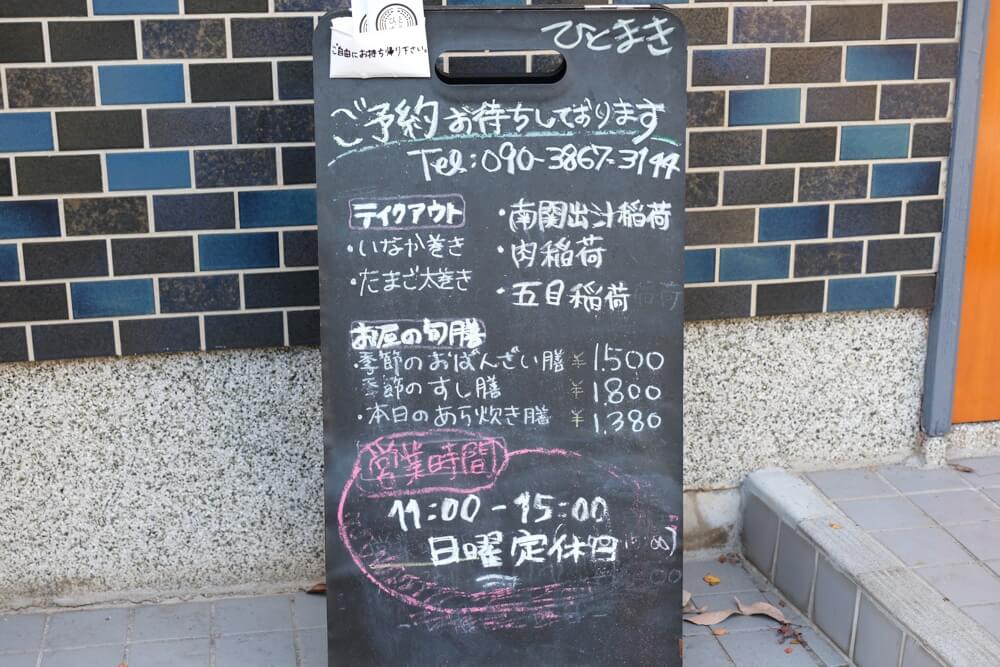 ひとまき
ご自由にお持ち帰り下さい。
ご予約お待ちしております
Tel:090-3867-3144
テイクアウト
・いなか巻き
・たまご太巻き
・南関出汁稲荷
・肉稲荷
・五目稲荷
お昼の旬膳
・季節のおばんざい膳 ¥1,500
季節のすし膳 ¥1,800
・本日のあら炊き膳 ¥1,380
営業時間
11:00-15:00
日曜定休日